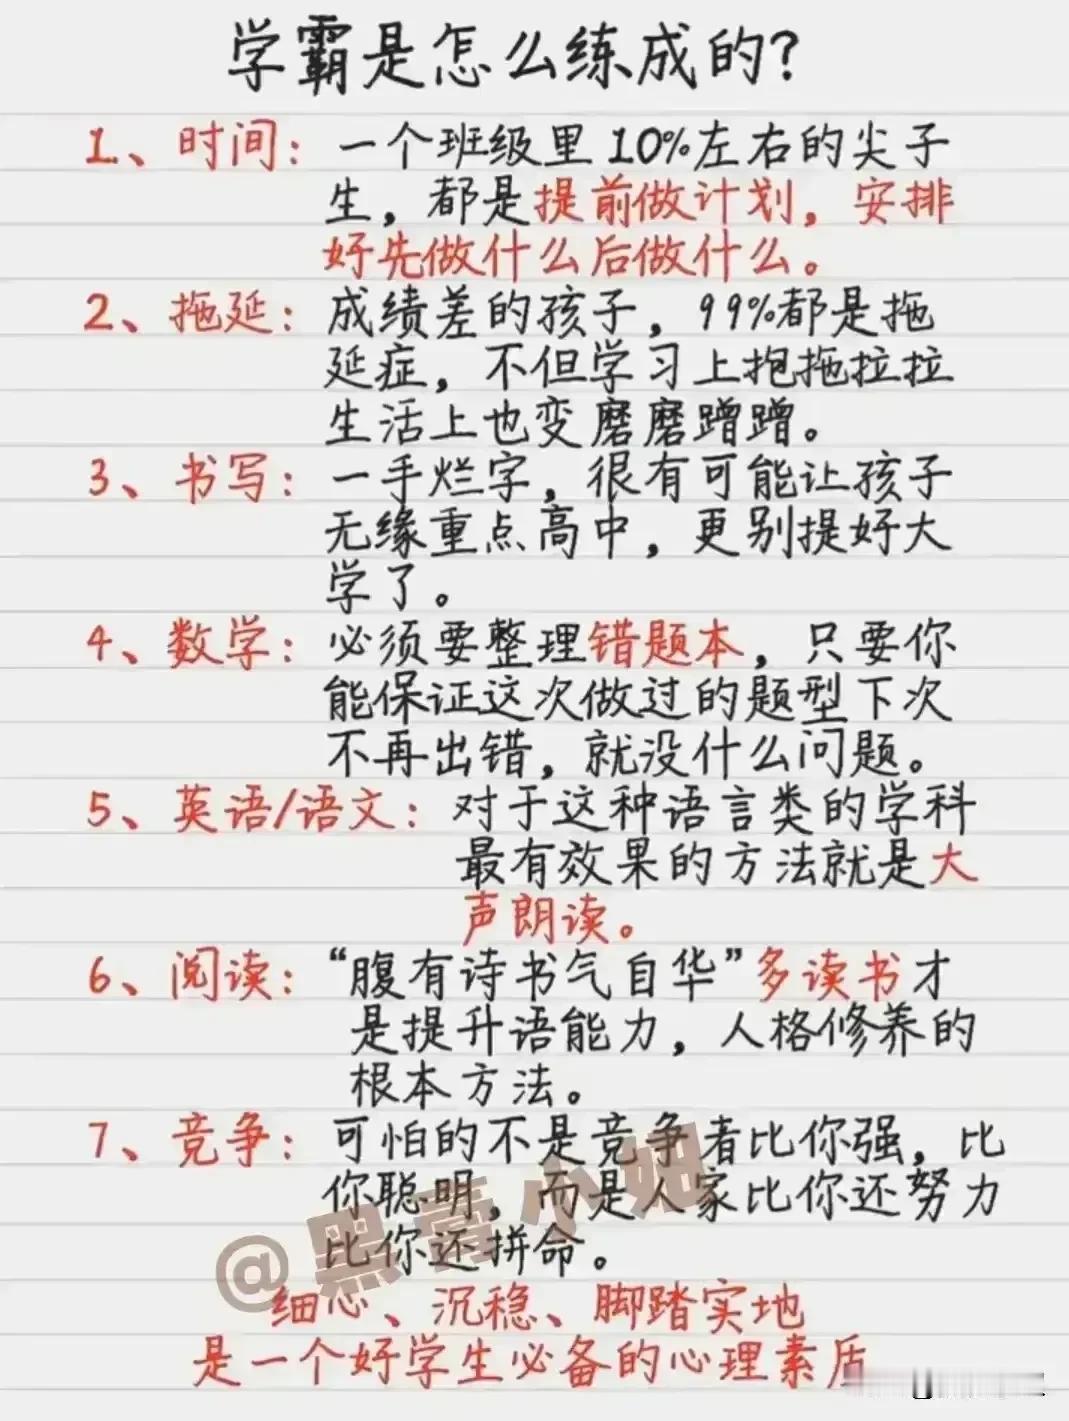 学霸是怎么练成的?
1、时间：一个班级里10%左右的尖子
生，都是提前做计划，安排
好先做什么后做什么。
2、拖延：成绩差的孩子，99%都是拖
延症，不但学习上抱拖拉拉
生活上也变磨磨蹭蹭。
3、书写：一手烂字，很有可能让孩子
无缘重点高中，更别提好大
学了。
4、数学：必须要整理错题本，只要你
能保证这次做过的题型下次
不再出错，就没什么问题。
5、英语/语文：对于这种语言类的学科
最有效果的方法就是大
声朗读。
6、阅读：“腹有诗书气自华”多读书才
是提升语能力，人格修养的
根本方法。
7、竞争：可怕的不是竞争者比你强，比
你聪明，而是人家比你还努力
比你还拼命。
@黑膏小妞
细心、沉稳、脚踏实地
是一个好学生必备的心理素质